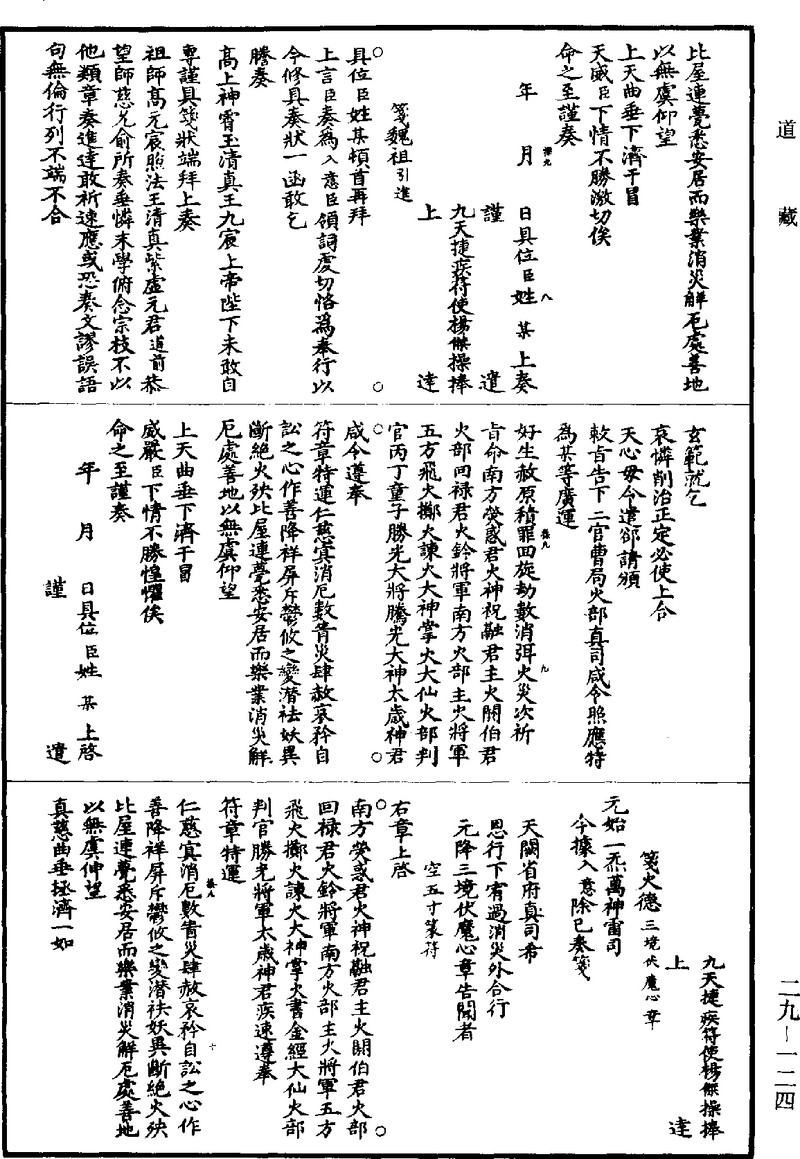 道藏
二九—一二四
比屋連甍悉安居而樂業消災解厄處善地
以無虞仰望
上天曲垂下濟干冒
天威臣下情不勝激切俟
命之至謹奏
年 月 日具位臣姓 某 上奏
謹 遣
九天捷疾符使楊傑操捧
上 達
箋魏祖引進
具位臣姓某頓首再拜
上言臣奏為入意臣領詞虔切恪為奉行以
今修具奏狀一函敢乞
騰奏
高上神霄玉清真王九宸上帝陛下未敢自
專謹具箋狀端拜上奏
祖師高元宸照法王清真紫虛元君道前恭
望師慈允俞所奏垂憐末學俯念宗枝不以
他類章奏進達敢祈速應或恐奏文謬誤語
句無倫行列不端不合
玄範就乞
哀憐削治正定必使上合
天心毋令遣卻請頒
敕旨告下二官曹局火部真司咸令照應特
為某等廣運
好生赦原積罪回旋劫數消弭火災次祈
旨命南方熒惑君火神祝融君主火閼伯君
火部回祿君火鈴將軍南方火部主火將軍
五方飛火擲火諫火大神掌火大仙火部判
官丙丁童子勝光大將騰光大神太歲神君
咸令遵奉
符章特運仁慈冥消厄數眚災肆赦哀矜自
訟之心作善降祥屏斥鬱攸之變潛祛妖異
斷絕火殃比屋連甍悉安居而樂業消災解
厄處善地以無虞仰望
上天曲垂下濟干冒
威嚴臣下情不勝惶懼俟
命之至謹奏
年 月 日具位臣姓 某 上啓
謹 遣
九天捷疾符使楊傑操捧
上 達
箋火德三境伏魔心章
元始一炁萬神雷司
今據入意除已奏箋
天闕省府真司希
恩行下宥過消災外合行
元降三境伏魔心章告聞者
空五寸篆符
右章上啓
南方熒惑君火神祝融君主火閼伯君火部
回祿君火鈴將軍南方火部主火將軍五方
飛火擲火諫火大神掌火書金經大仙火部
判官勝光將軍太歲神君疾速遵奉
符章特運
仁慈冥消厄數眚災肆赦哀矜自訟之心作
善降祥屏斥鬱攸之變潛祛妖異斷絕火殃
比屋連甍悉安居而樂業消災解厄處善地
以無虞仰望
真慈曲垂拯濟一如